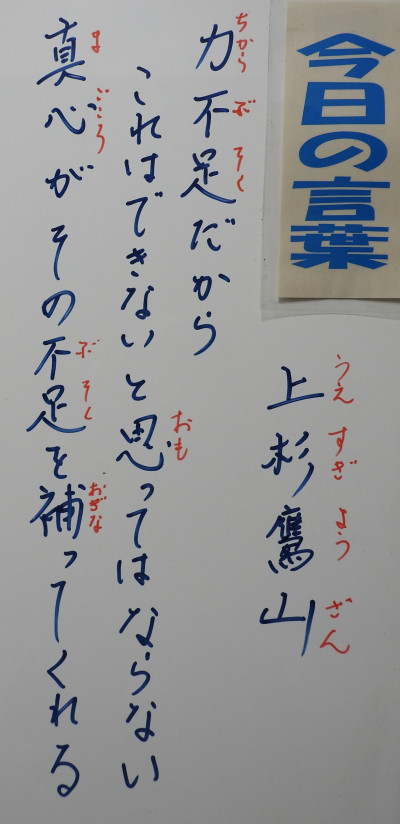 今日の言葉
うえすぎようざん
上杉鷹山
ちからぶそく
力不足だから
おも
これはできないと思ってはならない
まごころぶそくおぎな
真心がその不足を補ってくれる